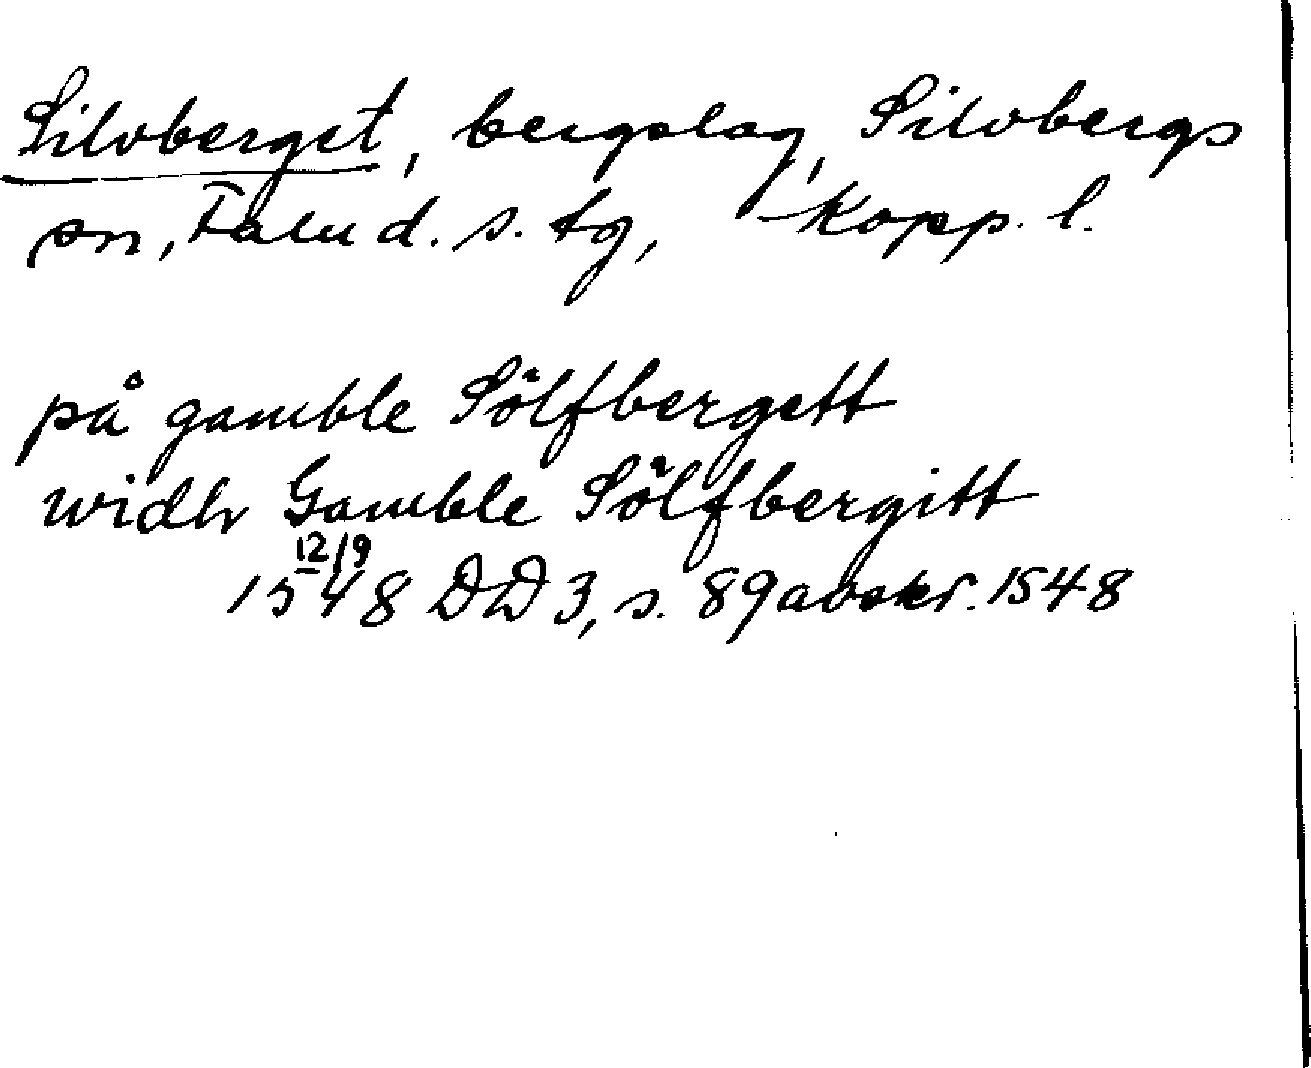 Silvberget, bergslag, Silvbergs
sn, Falu d. s. tg, Kopp. l.
på gamble Sölfbergett
widh Gamble Sölfbergitt
12/9
1548 DD 3, s. 89 avskr. 1548